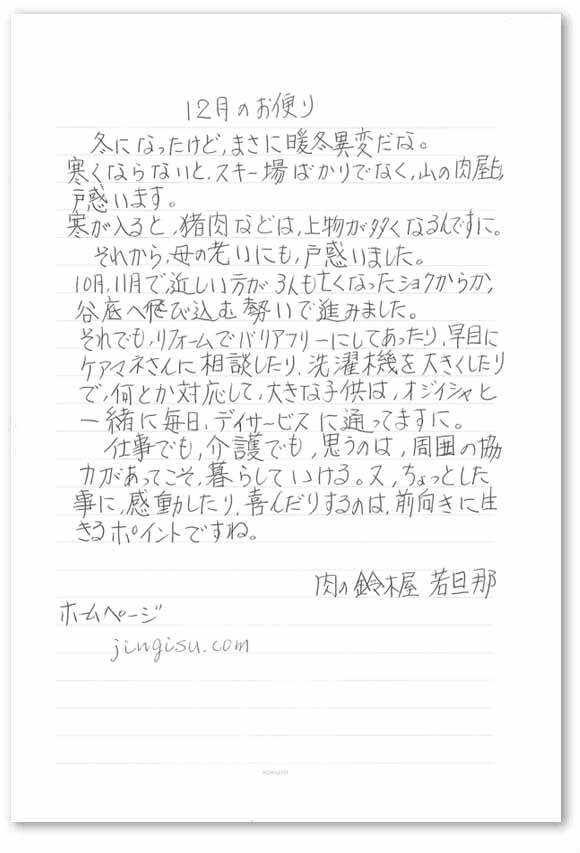 12月のお便り
冬になったけど、まさに暖冬異変だな。
寒くならないと、スキー場ばかりでなく、山の肉屋も、
戸惑います。
寒が入ると、猪肉などは、上物が多くなるんですに。
それから、母の老いにも、戸惑いました。
10月、11月で近しい方が3人も亡くなったショクからか、
谷底へ飛び込む勢いで進みました。
それでも、リフォームでバリアフリーにしてあったり、早目に
ケアマネさんに相談したり、洗濯機を大きくしたり
で、何とか対応して、大きな子供は、オジイシャと
一緒に毎日、デイサービスに通ってますに。
仕事でも、介護でも、思うのは、周囲の協
力があってこそ、暮らしていける。又、ちょっとした
事に、感動したり、喜んだりするのは、前向きに生
きるポイントですね。
肉の鈴木屋 若旦那
ホームページ
jingisu.com